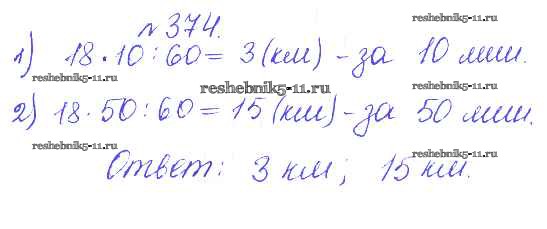 №374.
reshebnik5-11.ru
1) 18·10:60= 3(км) – за 10 мин.
reshebnik5-11.ru
reshebnik5-11.ru
2) 18·50:60=15(км) – за 50 мин.
reshebnik5-11.ru
reshebnik5-11.ru
Ответ: 3 км; 15 км.